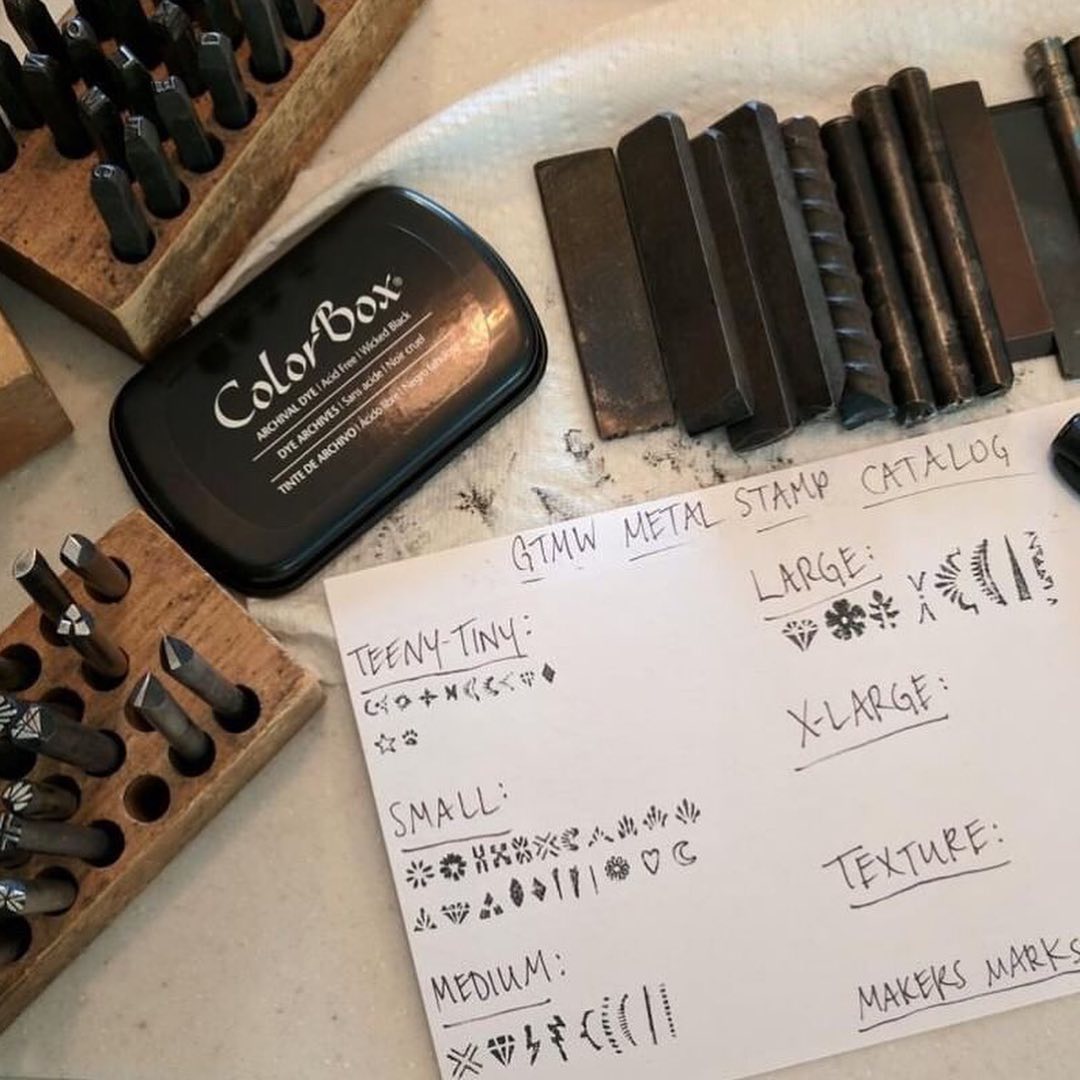 ColorBox®
ARCHIVAL DYE | Acid Free | Wicked Black
DYE ARCHIVES | Sans acide | Noir cruel
TINTE DE ARCHIVO | Ácido libre | Negro
GTMW METAL STAMP CATALOG
TEENY-TINY:
SMALL:
MEDIUM:
LARGE:
X-LARGE:
TEXTURE:
MAKERS MARKS